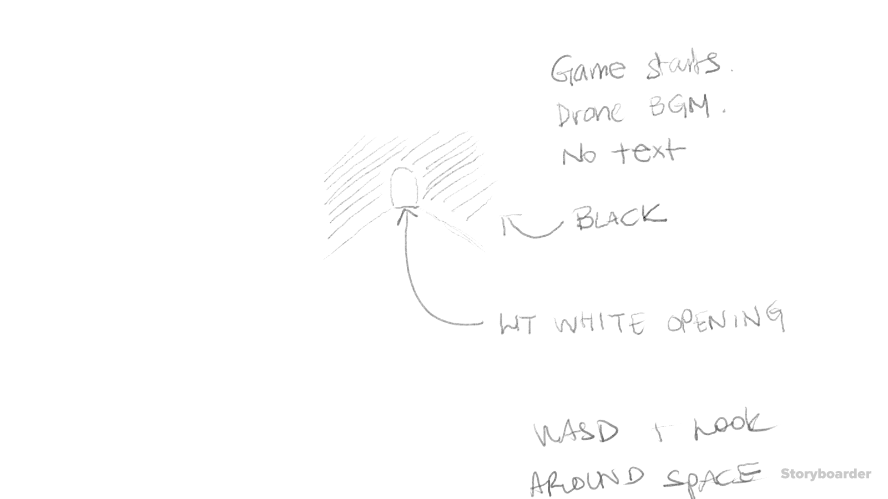 Game starts.
Drone BGM.
No text
BLACK
LIT WHITE OPENING
WASD + LOOK
AROUND SPACE
Storyboarder